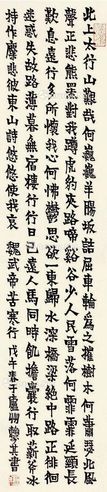 北上太行山艱哉何巍巍羊腸坂詰屈車輪為之摧樹木何蕭瑟北風
聲正悲熊羆對我蹲虎豹夾路啼谿谷少人民雪落何霏霏延頸長
歎息遠行多所懷我心何怫鬱思欲一東歸水深橋梁絕中路正徘徊
迷惑失故路薄暮無宿棲行行日已遠人馬同時飢擔囊行取薪斧冰
持作糜悲彼東山詩悠悠使我哀 魏武帝苦寒行 戊午春